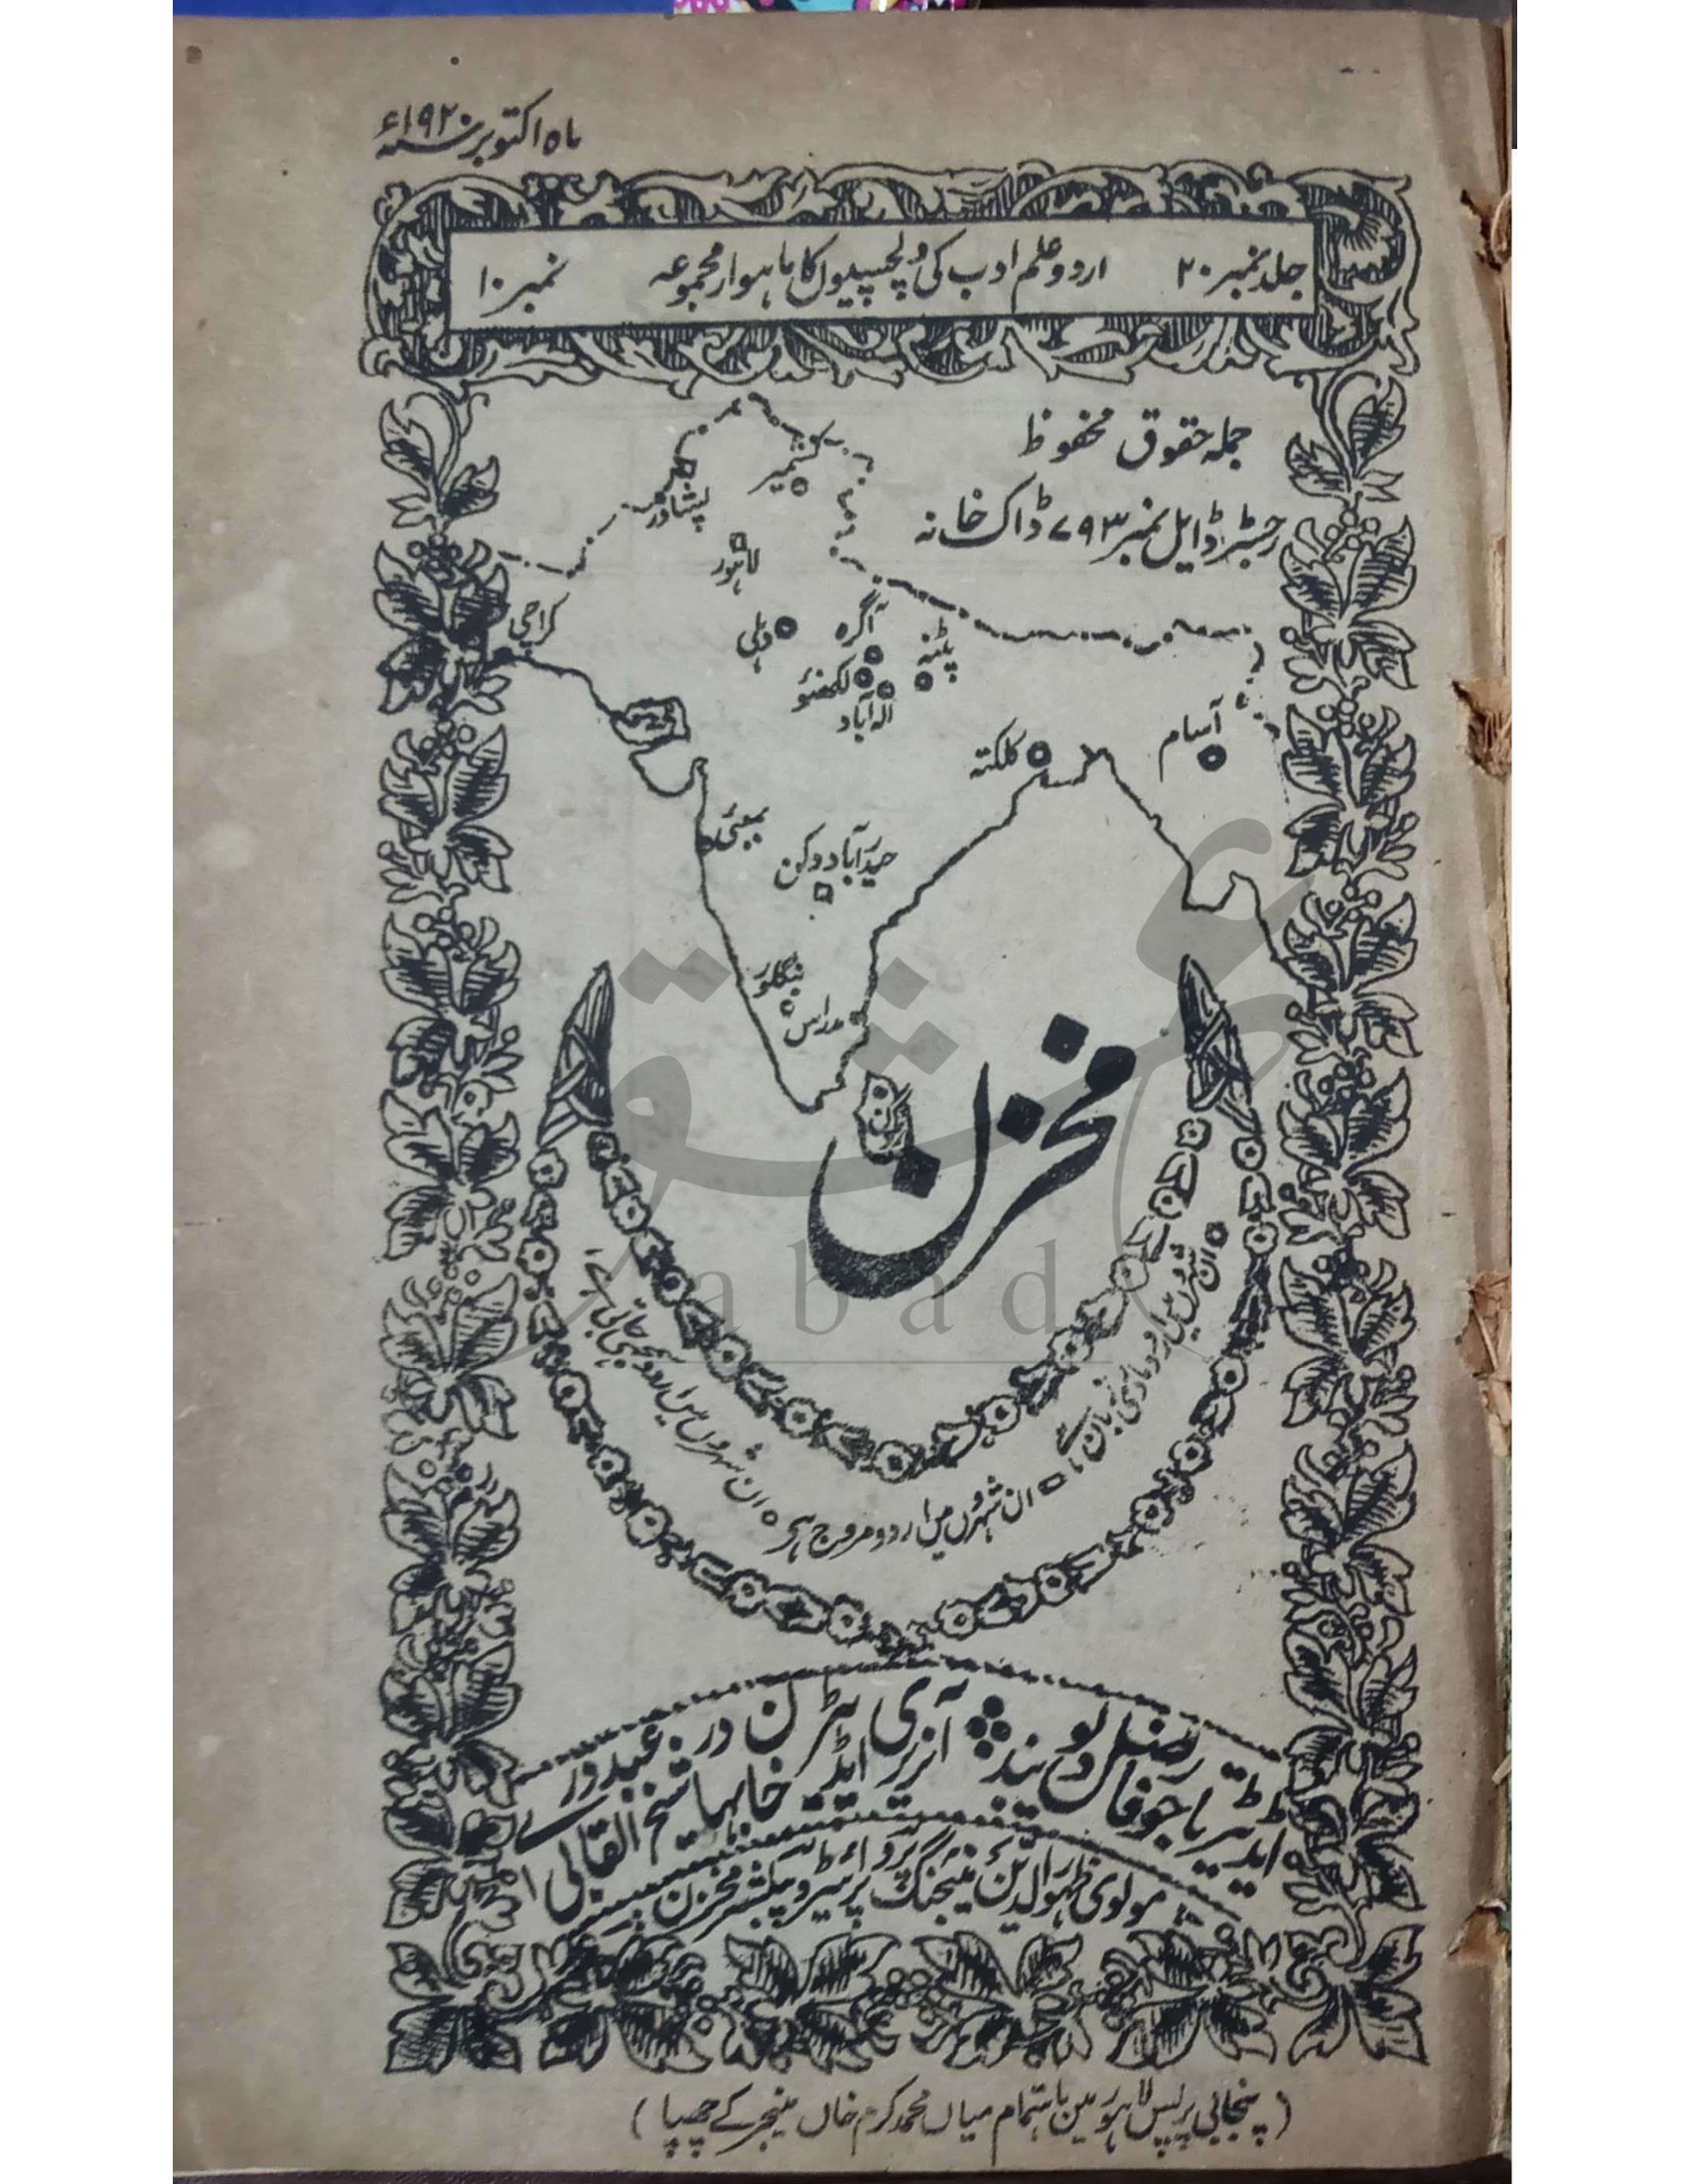 ماہ اکتوبر سنہ ۱۹۲۰ء
جلد نمبر ۲۰ اردو علم ادب کی دلچسپیوں کا ماہوار مجموعہ نمبر ۱۰
جملہ حقوق محفوظ
رجسٹرڈ ایل نمبر ۷۹۳ ڈاک خانہ
کشمیر
پشاور
لاہور
کراچی
دہلی
آگرہ
پٹنہ
لکھنئو
الہ آباد
آسام
کلکتہ
بمبئی
حیدرآباد دکن
بنگلور
مدراس
مخزن
ان شہروں میں اردو مادری زبان ہے
ان شہروں میں اردو مروج ہی
ان شہروں میں اردو سمجھی جاتی ہے
ایڈیٹر تاجور فاضل دیوبند
آنریری ایڈیٹر خان بہادر شیخ عبدالقادر بی اے
مولوی ظہور الدین مینجنگ پروپرائٹر و پبلشر مخزن
(پنجابی پریس لاہور مین باہتمام میاں محمد کرم خاں مینجر کے چھپا)
عشق
abad